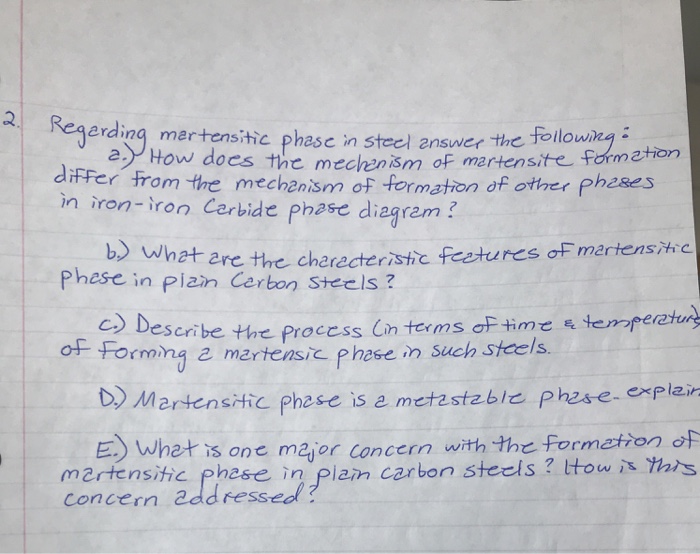 2. Regarding martensitic phase in steel answer the following:
a.) How does the mechanism of martensite formation
differ from the mechanism of formation of other phases
in iron-iron Carbide phase diagram?
b.) What are the characteristic features of martensitic
phase in plain Carbon steels?
c.) Describe the process (in terms of time & temperature)
of forming a martensic phase in such steels.
D.) Martensitic phase is a metastable phase- explain
E.) What is one major concern with the formation of
martensitic phase in plain carbon steels? How is this
concern addressed?